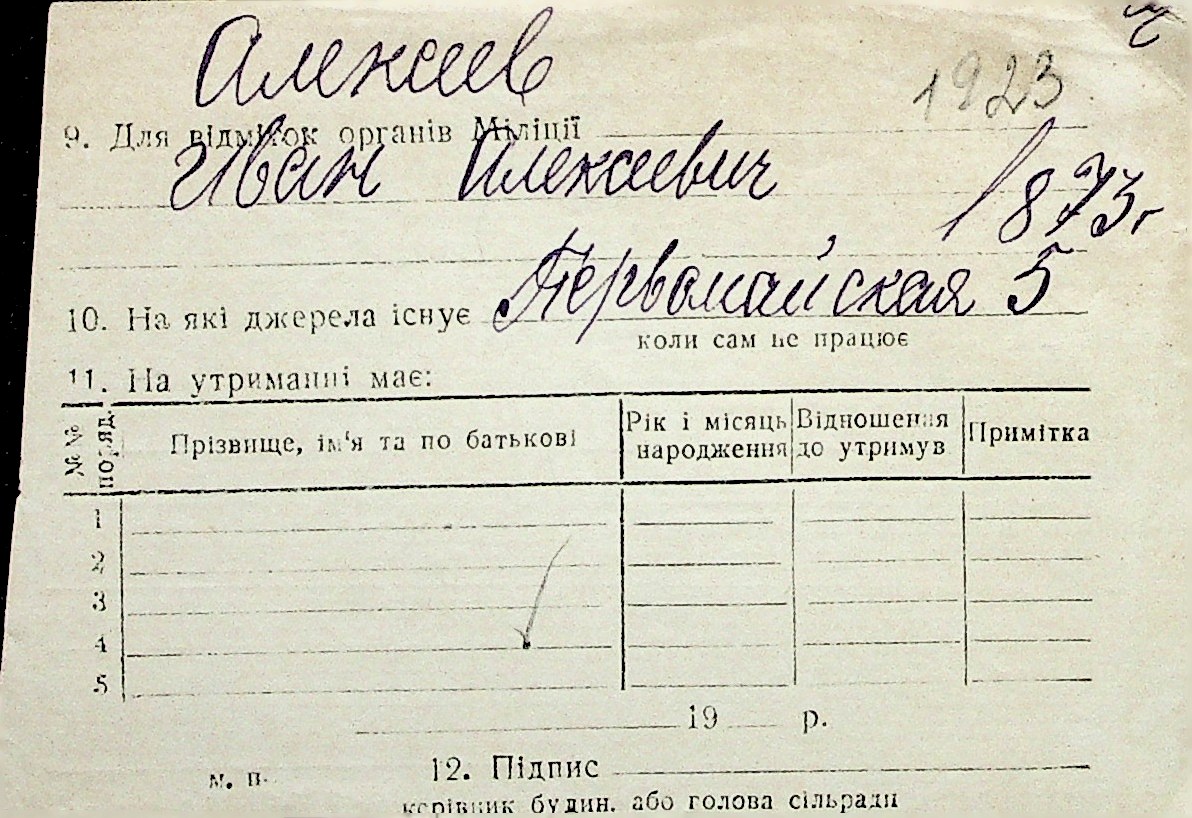 Алексеев
1923
9. Для відміток органів Міліції
Иван Алексеевич 1873 г
Первомайская 5
10. На які джерела існує
коли сам не працює
11. На утриманні має:
№№ поряд. Прізвище, ім'я та по батькові Рік і місяць народження Відношення до утримув Примітка
1
2
3
4
5
19 р.
м. п. 12. Підпис
керівник будин. або голова сільради